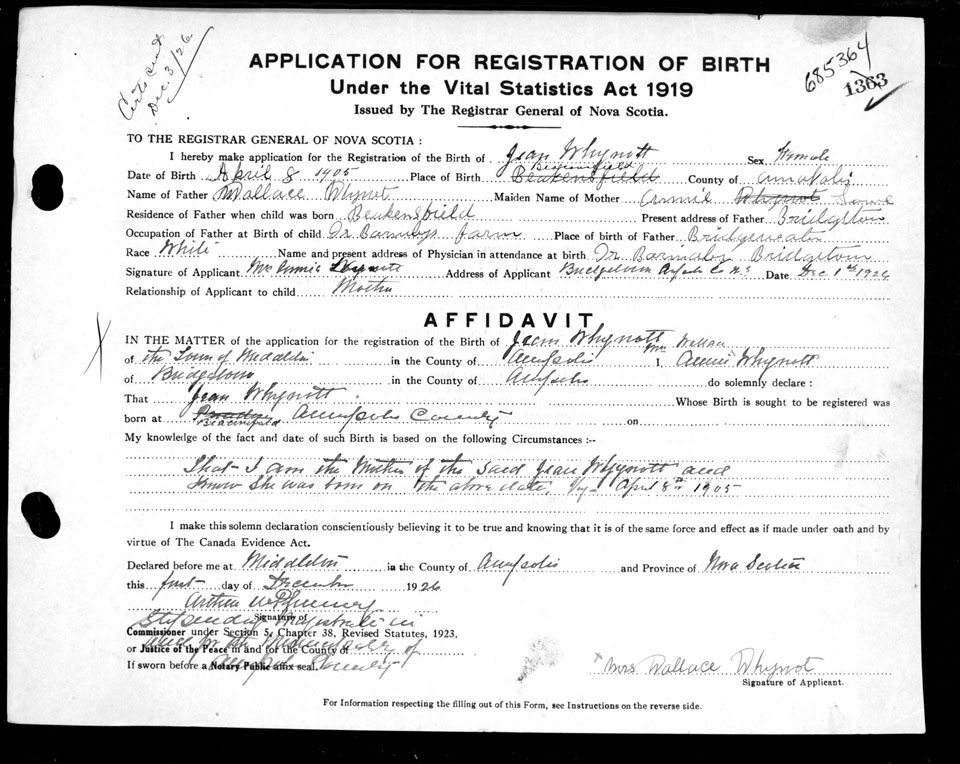 Certs sent
Dec. 3/26
685364
1363
APPLICATION FOR REGISTRATION OF BIRTH
Under the Vital Statistics Act 1919
Issued by The Registrar General of Nova Scotia.
TO THE REGISTRAR GENERAL OF NOVA SCOTIA :
I hereby make application for the Registration of the Birth of Jean Whynott Sex Female
Date of Birth April 8 1905 Place of Birth Beakensfield County of Annapolis
Name of Father Wallace Whynot Maiden Name of Mother Annie Whynot
Residence of Father when child was born Beakensfield Present address of Father Bridgetown
Occupation of Father at Birth of child farm Place of birth of Father Bridgewater
Race White Name and present address of Physician in attendance at birth Dr Bridgetown
Signature of Applicant Mrs Annie Whynott Address of Applicant Bridgetown N.S Date Dec 1st 1926
Relationship of Applicant to child Mother
AFFIDAVIT
IN THE MATTER of the application for the registration of the Birth of Jean Whynott
of the Town of Middleton in the County of Annapolis I, Mrs Wallace Annie Whynott
of Bridgetown in the County of Annapolis do solemnly declare :
That Jean Whynott Whose Birth is sought to be registered was
born at Annapolis County on
My knowledge of the fact and date of such Birth is based on the following Circumstances :--
That I am the Mother of the said Jean Whynott and
know she was born on the above date, Viz- April 8th 1905
I make this solemn declaration conscientiously believing it to be true and knowing that it is of the same force and effect as if made under oath and by
virtue of The Canada Evidence Act.
Declared before me at Middleton in the County of Annapolis and Province of Nova Scotia
this first day of December 1926
Arthur
Signature of
Stipendiary Magistrate in
Commissioner under Section 5, Chapter 38, Revised Statutes, 1923,
and for the Municipality of
or Justice of the Peace in and for the County of
Annapolis County
If sworn before a Notary Public affix seal.
Mrs Wallace Whynot
Signature of Applicant.
For Information respecting the filling out of this Form, see Instructions on the reverse side.